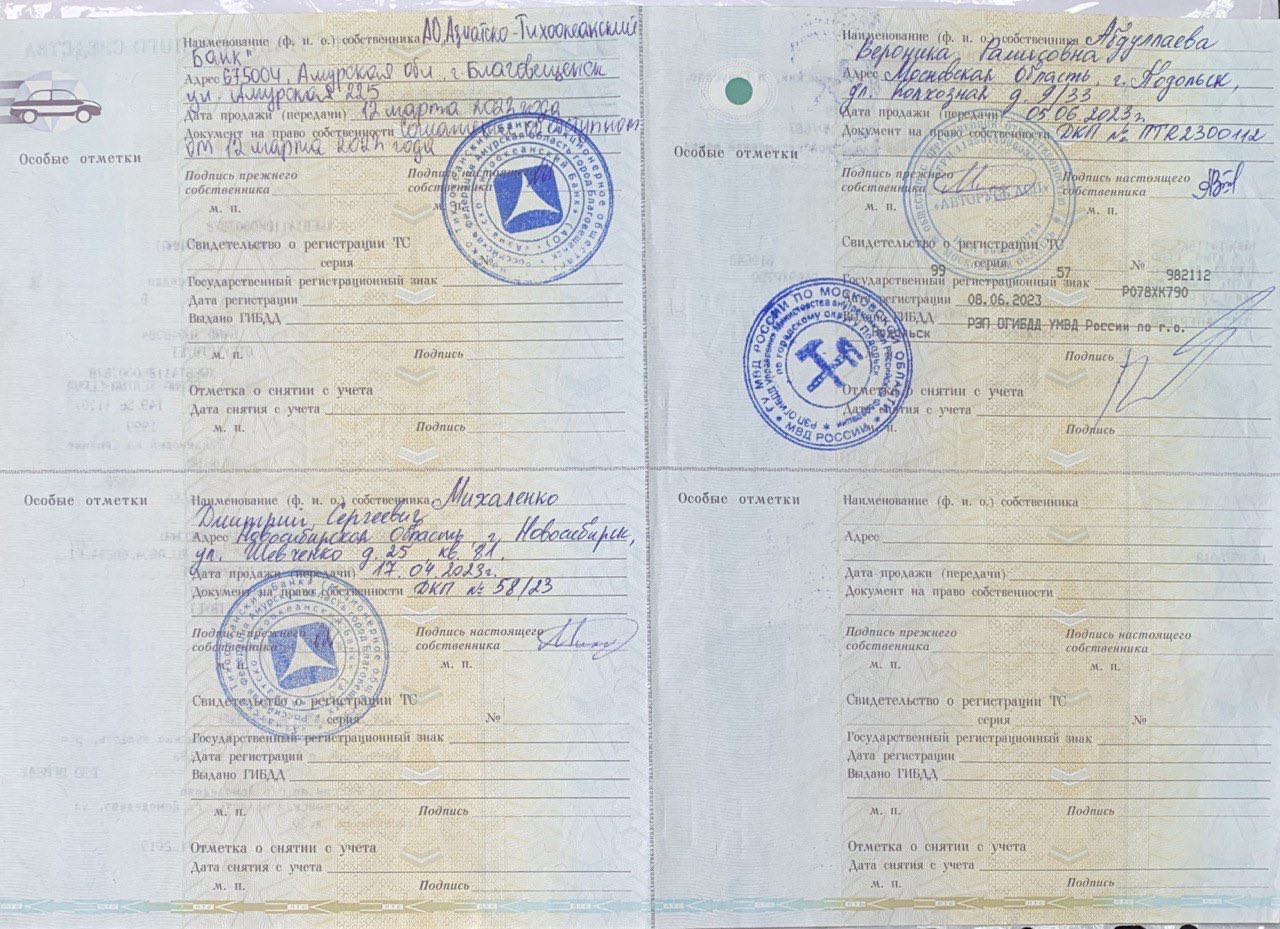 Особые отметки
Наименование (ф. и. о.) собственника АО„Азиатско-Тихоокеанский
Банк"
Адрес 675004, Амурская обл, г. Благовещенск
ул. Амурская 225
Дата продажи (передачи) 12 марта 2022 года
Документ на право собственности
от 12 марта года
Подпись прежнего
собственника
Подпись настоящего
собственника
м. п.
м. п.
Свидетельство о регистрации ТС
серия №
Государственный регистрационный знак
Дата регистрации
Выдано ГИБДД
м. п. Подпись
Отметка о снятии с учета
Дата снятия с учета
м. п. Подпись
Особые отметки
Наименование (ф. и. о.) собственника Абдуллаева
Вероника Рамисовна
Адрес Московская область, г. Подольск,
ул. Колхозная д. 9/33
Дата продажи (передачи) 05.06.2023г
Документ на право собственности ДКП № PTR2300112
Подпись прежнего
собственника
Подпись настоящего
собственника
м. п.
м. п.
"АВТОРУСЬ
Свидетельство о регистрации ТС
99 серия 57 № 982112
Государственный регистрационный знак Р078ХК790
Дата регистрации 08.06.2023
Выдано ГИБДД РЭП ОГИБДД УМВД России по г.о.
Подольск
Подпись
ГУ МВД РОССИИ ПО МОСКОВСКОЙ ОБЛАСТИ
МВД РОССИИ
по городскому округу Подольск
Отметка о снятии с учета
Дата снятия с учета
м. п. Подпись
Особые отметки
Наименование (ф. и. о.) собственника Михаленко
Дмитрий Сергеевич
Адрес Новосибирская Область, г. Новосибирск,
ул. Шевченко д. 25 кв. 81.
Дата продажи (передачи) 17.04.2023г.
Документ на право собственности ДКП № 58/23
Подпись прежнего
собственника
Подпись настоящего
собственника
м. п.
Свидетельство о регистрации ТС
серия №
Государственный регистрационный знак
Дата регистрации
Выдано ГИБДД
м. п. Подпись
Отметка о снятии с учета
Дата снятия с учета
м. п. Подпись
Особые отметки
Наименование (ф. и. о.) собственника
Адрес
Дата продажи (передачи)
Документ на право собственности
Подпись прежнего
собственника
Подпись настоящего
собственника
м. п.
м. п.
Свидетельство о регистрации ТС
серия №
Государственный регистрационный знак
Дата регистрации
Выдано ГИБДД
м. п. Подпись
Отметка о снятии с учета
Дата снятия с учета
м. п. Подпись